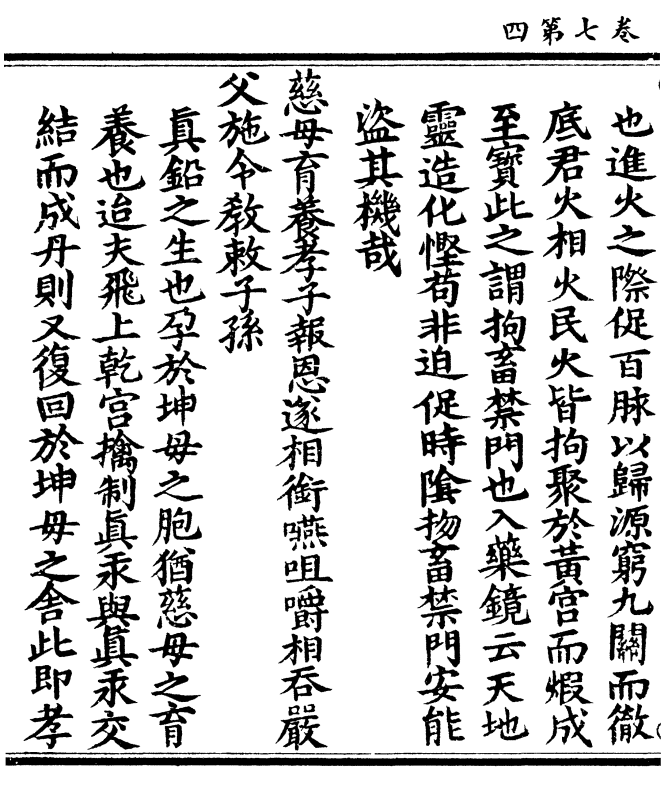 卷七第四
也進火之際促百脉以歸源窮九關而徹
底君火相火民火皆拘聚於黃宮而煆成
至寶此之謂拘畜禁門也入藥鏡云天地
靈造化慳苟非迫促時隂拘畜禁門安能
盜其機哉
慈母育養孝子報恩遂相銜嚥咀嚼相吞嚴
父施令教敕子孫
眞鉛之生也孕於坤母之胞猶慈母之育
養也迨夫飛上乾宮擒制眞汞與眞汞交
結而成丹則又復回於坤母之舍此即孝